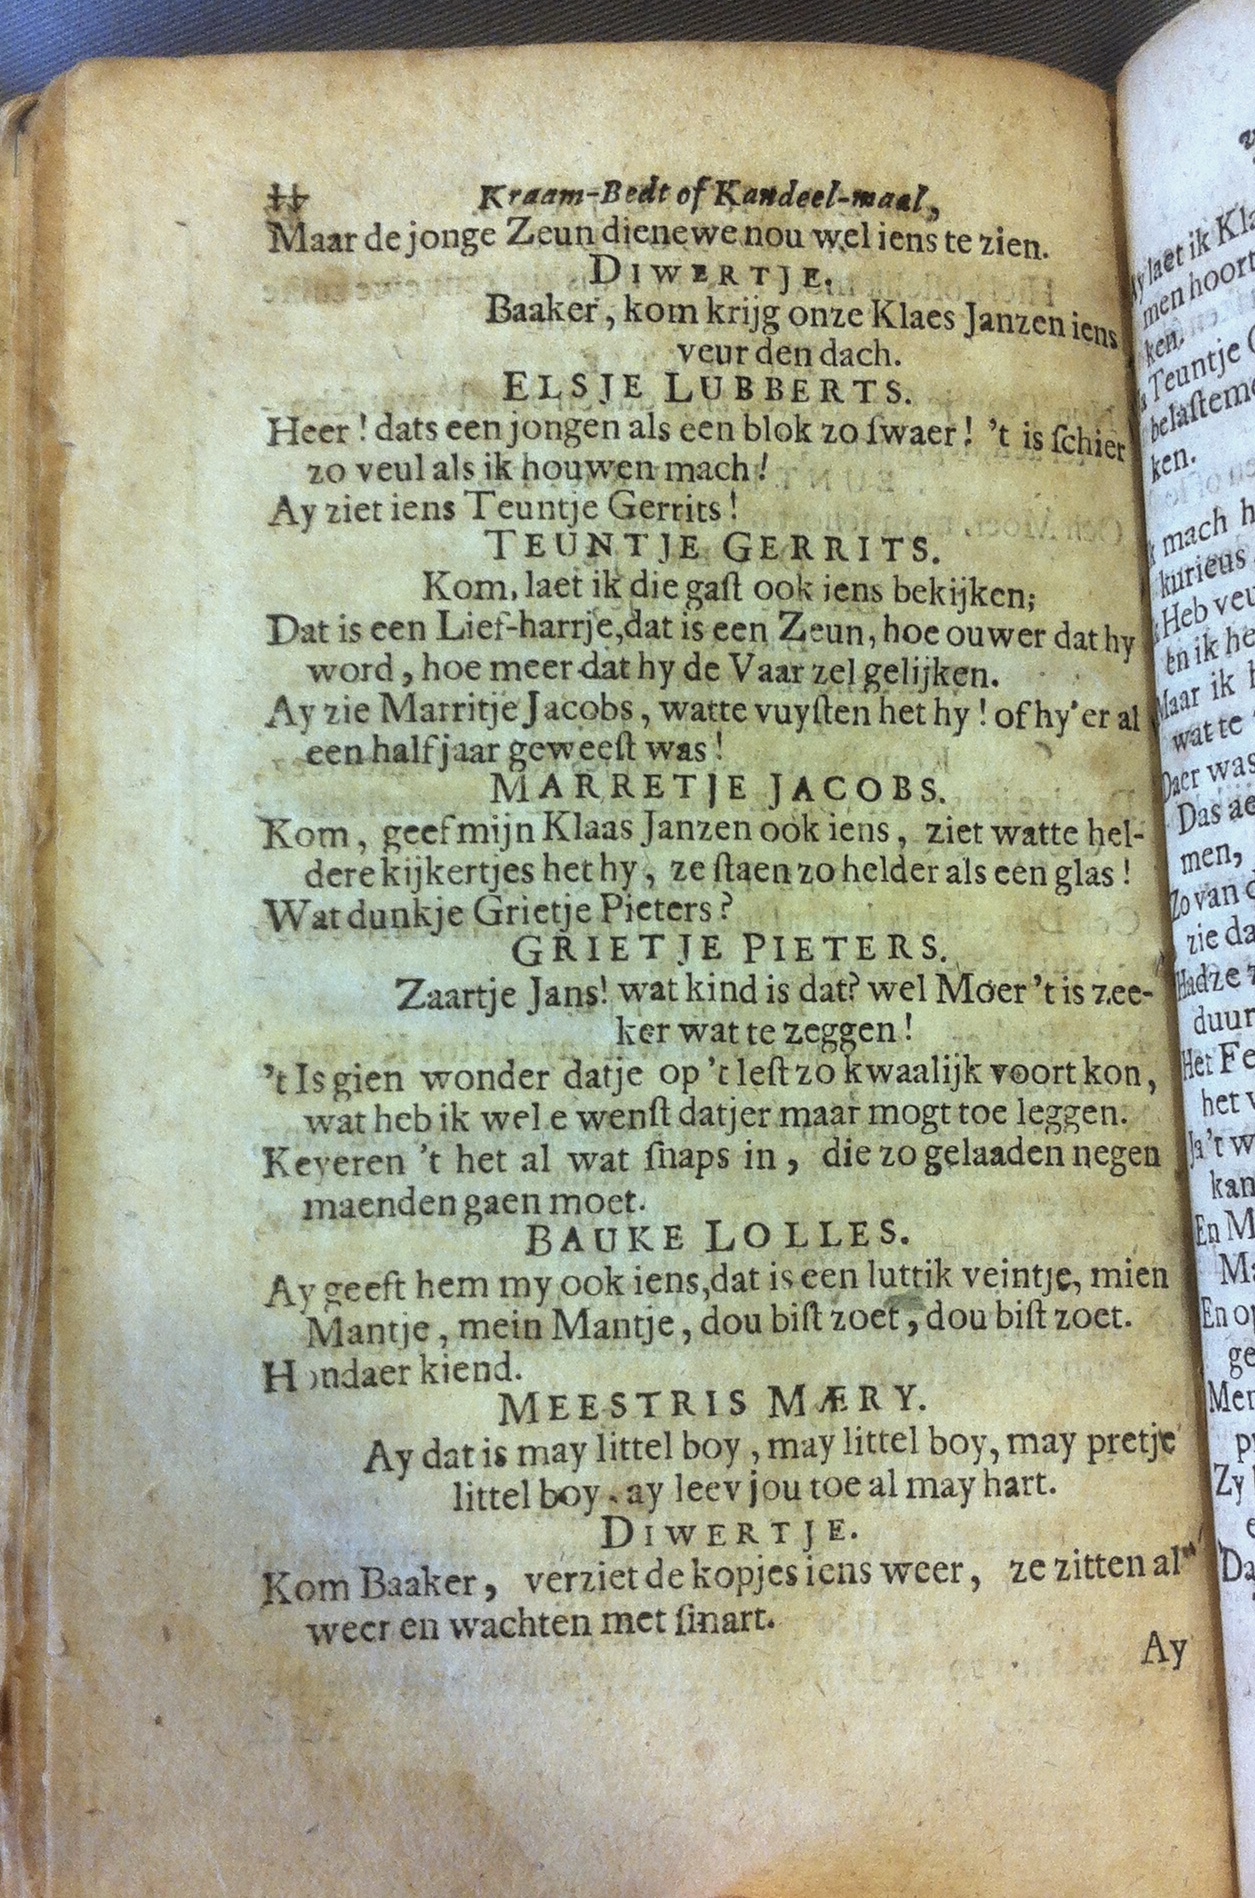 44 Kraam-Bedt of Kandeel-maal,
Maar de jonge Zeun dienewe nou wel iens te zien.
DIWERTJE.
Baaker, kom krijg onze Klaes Janzen iens
veur den dach.
ELSJE LUBBERTS.
Heer! dats een jongen als een blok zo ſwaer! 't is ſchier
zo veul als ik houwen mach!
Ay ziet iens Teuntje Gerrits!
TEUNTJE GERRITS.
Kom, laet ik die gaſt ook iens bekijken;
Dat is een Lief-harrje, dat is een Zeun, hoe ouwer dat hy
word, hoe meer dat hy de Vaar zel gelijken.
Ay zie Marritje Jacobs, watte vuyſten het hy! of hy'er al
een half jaar geweeſt was!
MARRETJE JACOBS.
Kom, geef mijn Klaas Janzen ook iens, ziet watte hel-
dere kijkertjes het hy, ze ſtaen zo helder als een glas!
Wat dunkje Grietje Pieters?
GRIETJE PIETERS.
Zaartje Jans! wat kind is dat? wel Moer 't is zee-
ker wat te zeggen!
't Is gien wonder datje op 't leſt zo kwaalijk voort kon,
wat heb ik wel e wenſt datjer maar mogt toe leggen.
Keyeren 't het al wat ſnaps in, die zo gelaaden negen
maenden gaen moet.
BAUKE LOLLES.
Ay geeft hem my ook iens, dat is een luttik veintje, mien
Mantje, mein Mantje, dou biſt zoet, dou biſt zoet.
Hondaer kiend.
MEESTRIS MÆRY.
Ay dat is may littel boy, may littel boy, may pretje
littel boy, ay leev jou toe al may hart.
DIWERTJE.
Kom Baaker, verziet de kopjes iens weer, ze zitten al
weer en wachten met ſmart.
Ay
Ay laet ik Kla
men hoort
ken.
Teuntje
belaſteme
ken.
mach h
kurieus
Heb veu
en ik he
Maar ik
wat te
Daer was
Das ae
men,
Zo van
zie da
Hadze z
duur
Het Fe
het
Ja 't w
kan
En M
Ma
En op
ge
Men
Zy
Da